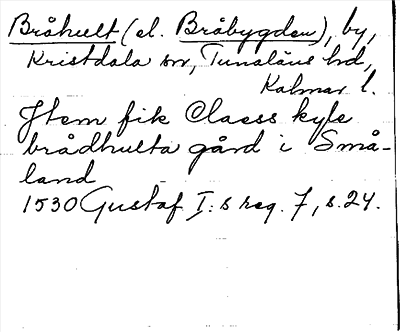 Bråhult (el. Bråbygden), by,
Kristdala sn, Tunaläns hd,
Kalmar l.
Item fik Claess kyle
brådhulta gård i Små-
land
1530 Gustaf I:s reg. 7, s. 24.